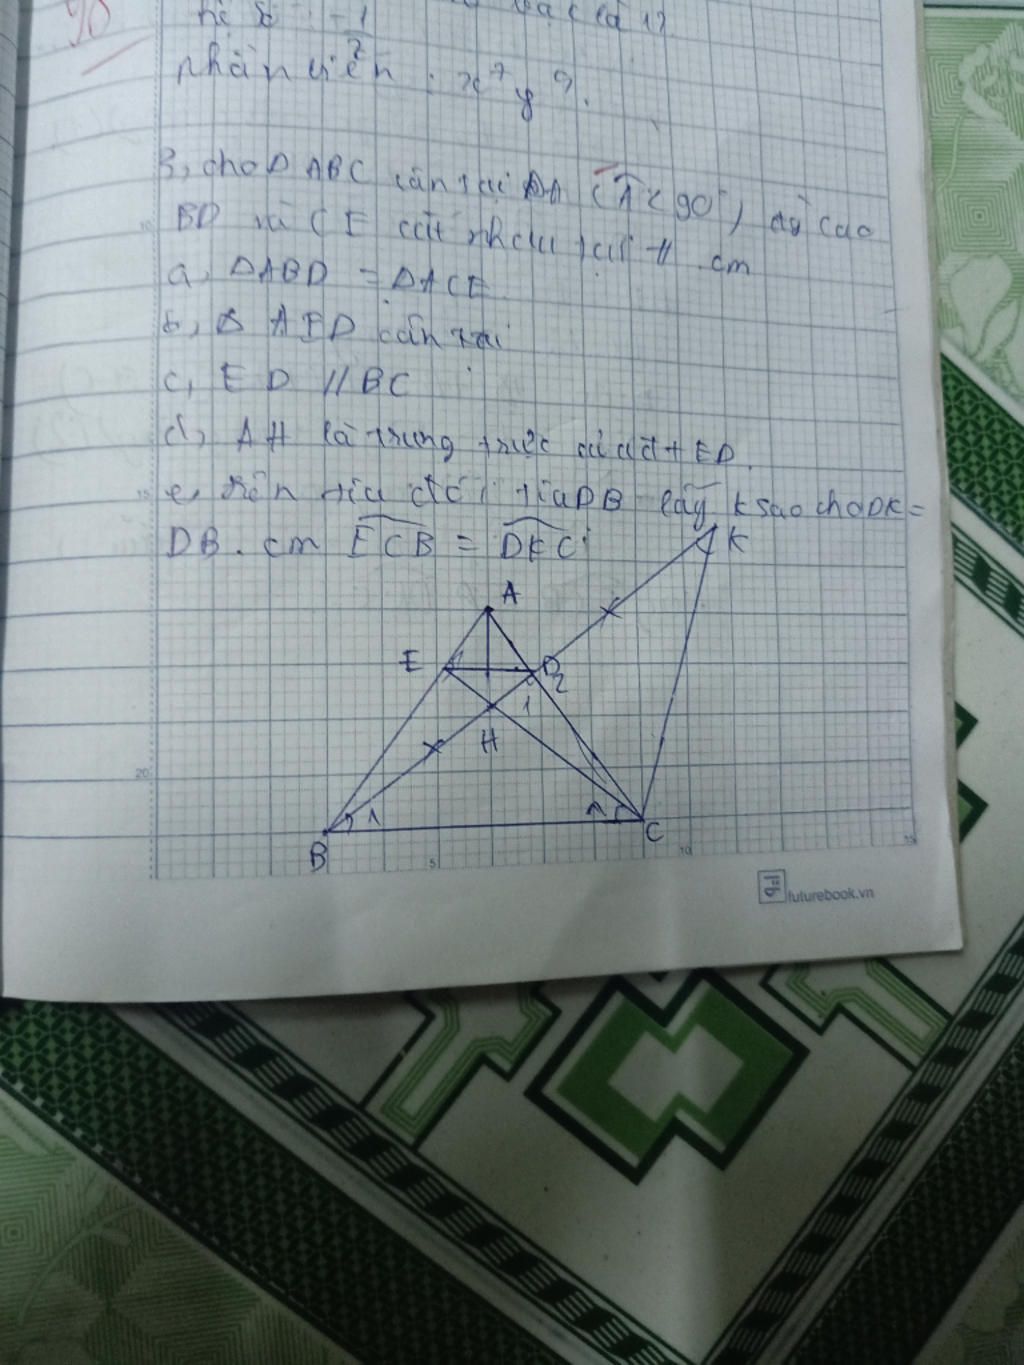 90
hệ số : -1
2
phần biến : x⁷ y⁹.
3, cho Δ ABC cân tại ΔA (Â < 90°), đg cao
BD và CE cắt nhau tại H cm
a, ΔABD = ΔACE
b, Δ AED cân tại
c, ED // BC
d, AH là trung trực của ED.
e, trên tia đối tia DB lấy K sao cho DK =
DB. cm ECB = DKC
K
A
E
D
2
1
H
1
1
B
C
5
10
15
10
15
20
futurebook.vn